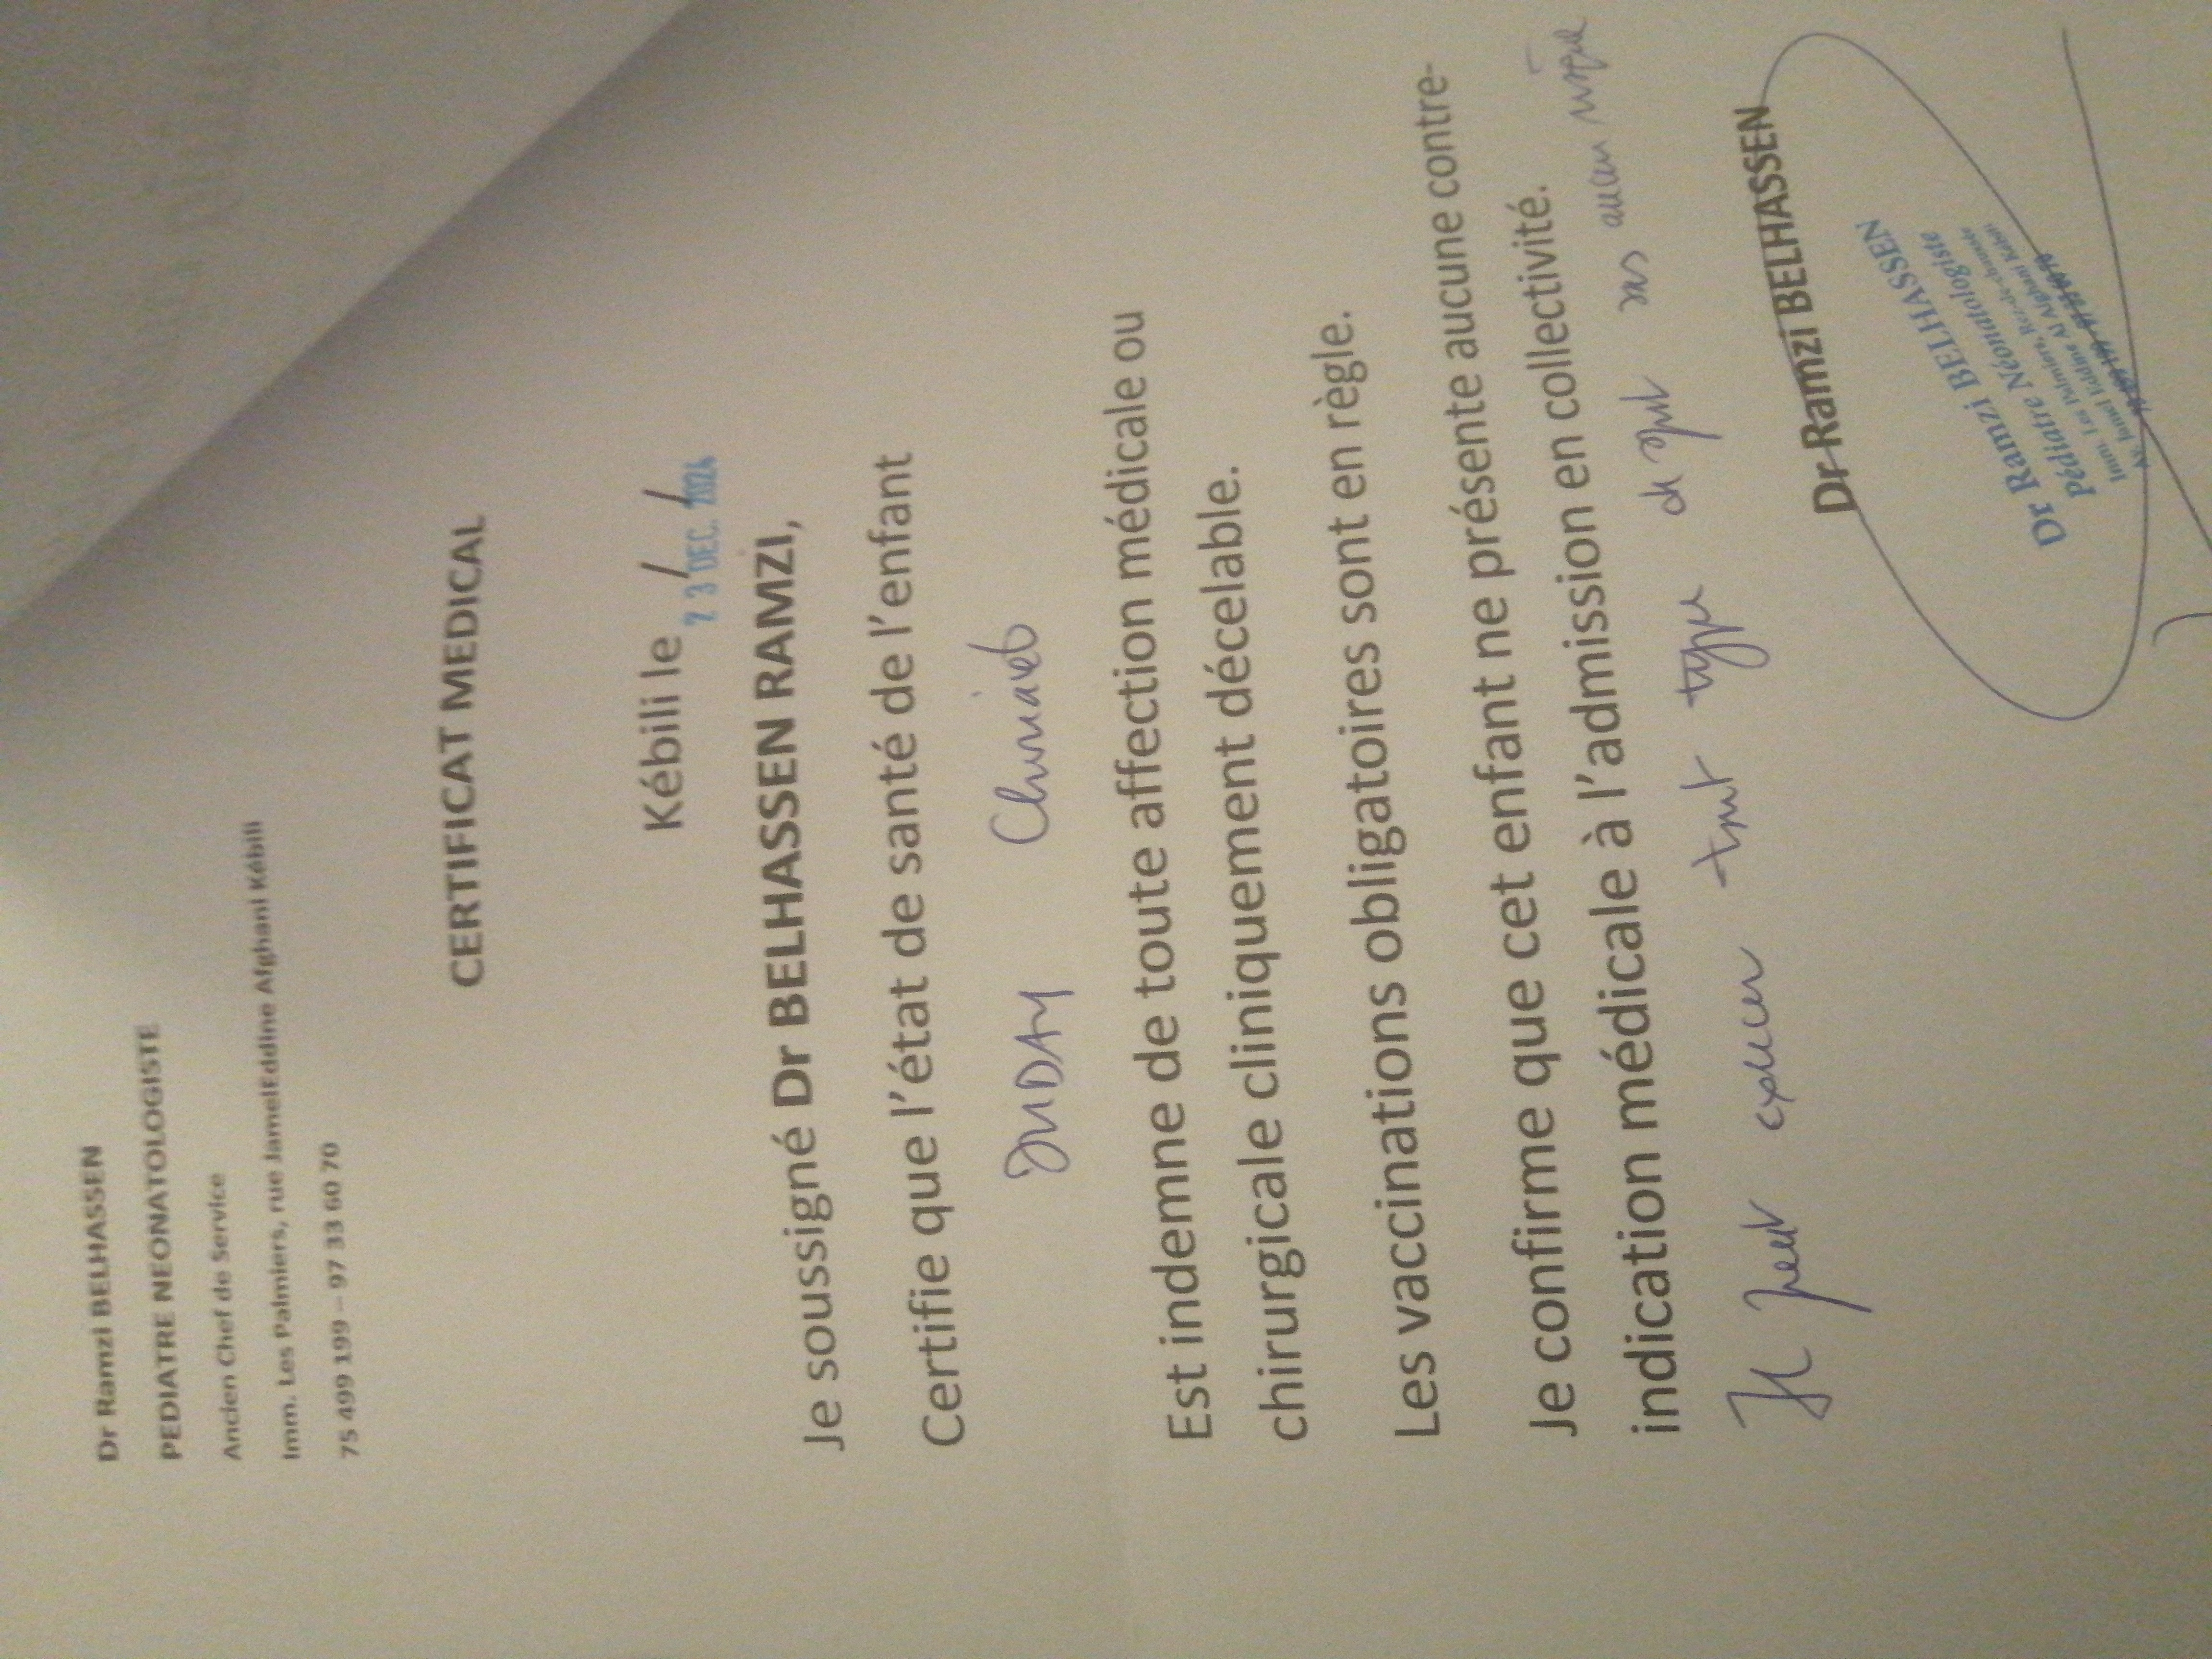 Dr Ramzi BELHASSEN
PEDIATRE NEONATOLOGISTE
Ancien Chef de Service
Imm. Les Palmiers, rue JamelEddine Afghani Kébili
75 499 199 – 97 33 60 70
CERTIFICAT MEDICAL
Kébili le / /
23 DEC. 2024
Je soussigné Dr BELHASSEN RAMZI,
Certifie que l'état de santé de l'enfant
Est indemne de toute affection médicale ou
chirurgicale cliniquement décelable.
Les vaccinations obligatoires sont en règle.
Je confirme que cet enfant ne présente aucune contre-
indication médicale à l'admission en collectivité.
Il peut exercer tout type de sport sans aucun risque
Dr Ramzi BELHASSEN
Dr Ramzi BELHASSEN
Pédiatre Néonatologiste
Imm. Les Palmiers, Rez-de-chaussée
Av. Jamel Eddine Al Afghani Kébili